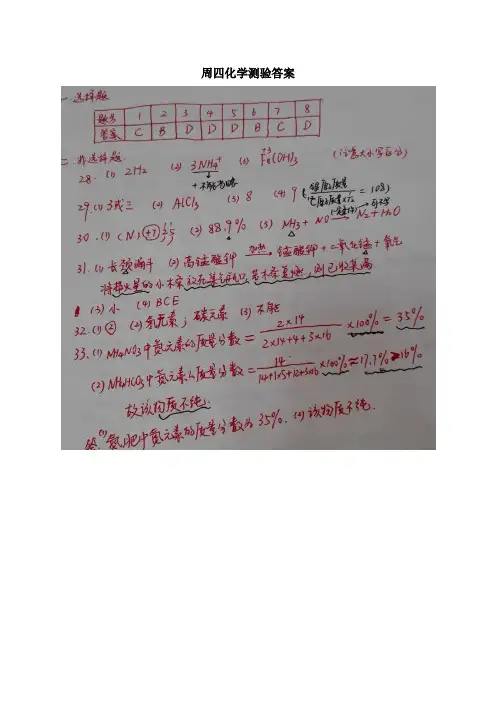 周四化学测验答案
一 选择题
题号 1 2 3 4 5 6 7 8
答案 C B D D D B C D
二. 非选择题.
28. (1) 2H₂ (2) 3NH₄⁺ (3) Fe(OH)₃ +3 (注意大小写区分)
+不能省略
29. (1) 3或三 (2) AlCl₃ (3) 8 (4) 9
30. (1) (N) +7 (2) 88.9% (3) NH₃ + NO → N₂ + H₂O
31. (1) 长颈漏斗 (2) 高锰酸钾 加热→ 锰酸钾 + 二氧化锰 + 氧气
将带火星的小木条放在集气瓶口, 若木条复燃, 则已收集满
(3) 小 (4) BCE
32. (1) ② (2) 氢元素; 碳元素 (3) 不能
33. (1) NH₄NO₃中氮元素的质量分数 = 2×14 / 2×14+4+3×16 ×100% = 35%
(2) NH₄HCO₃中氮元素的质量分数 = 14 / 14+1×5+12+3×16 ×100% ≈ 17.7% > 16%
故该物质不纯.
答: (1) 氮肥中氮元素的质量分数为35%. (2) 该物质不纯.